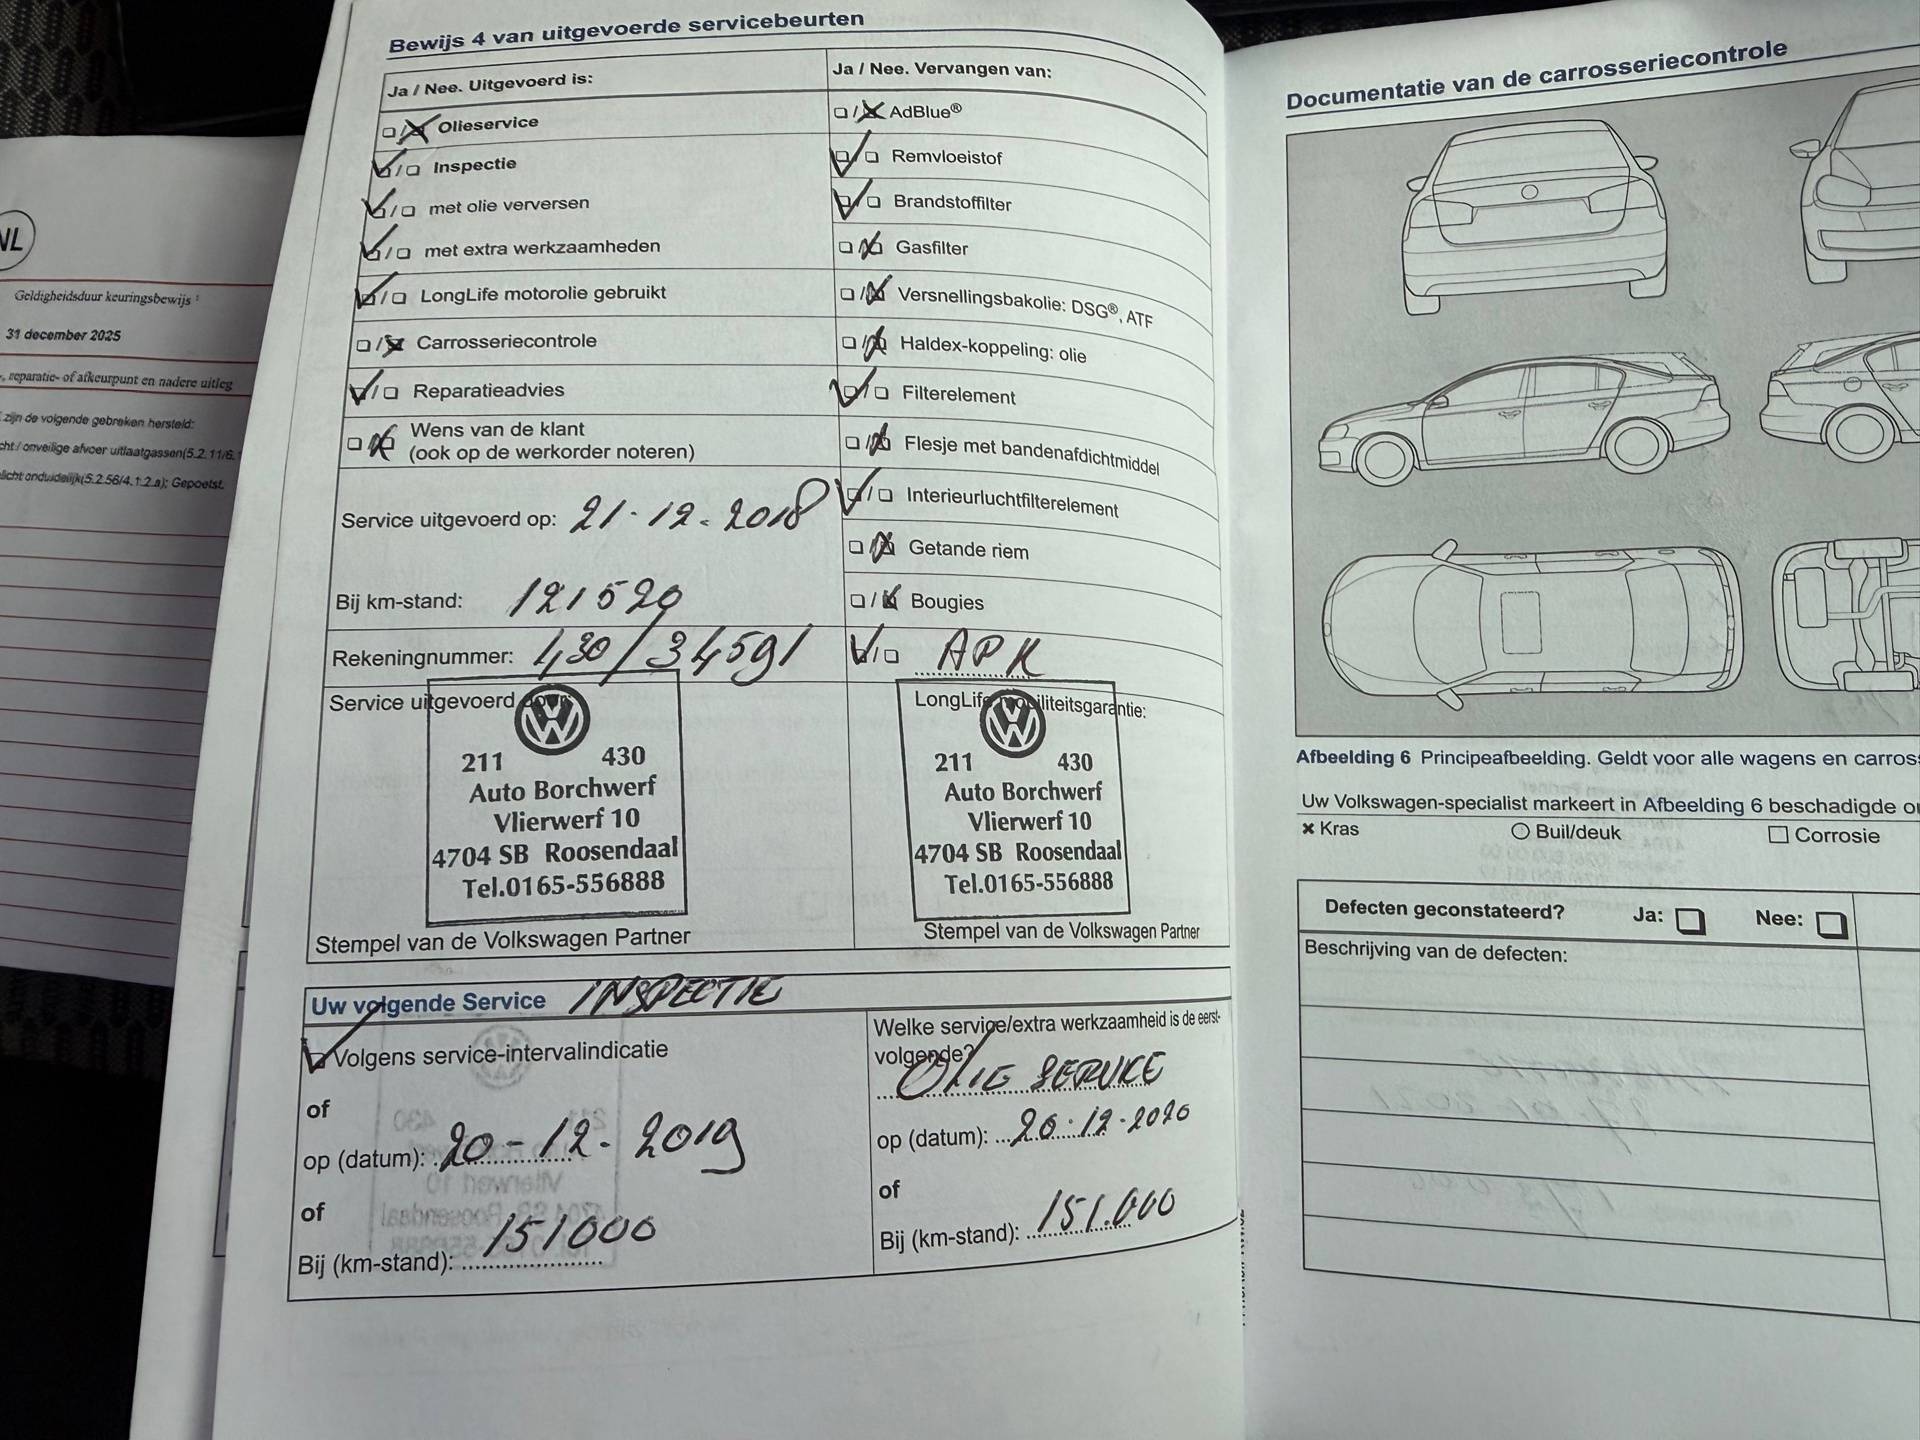 NL
Geldigheidsduur keuringsbewijs
31 december 2025
reparatie- of afkeurpunt en nadere uitleg
zijn de volgende gebreken hersteld:
onveilige afvoer uitlaatgassen(5.2.11/6.
licht onduidelijk(5.2.56/4.1.2.a); Gepoetst.
Bewijs 4 van uitgevoerde servicebeurten
Ja / Nee. Uitgevoerd is:
Olieservice
Inspectie
met olie verversen
met extra werkzaamheden
LongLife motorolie gebruikt
Carrosseriecontrole
Reparatieadvies
Wens van de klant
(ook op de werkorder noteren)
Service uitgevoerd op: 21-12-2018
Bij km-stand: 121520
Rekeningnummer: 430/34591
Service uitgevoerd door:
211 430
Auto Borchwerf
Vlierwerf 10
4704 SB Roosendaal
Tel.0165-556888
Stempel van de Volkswagen Partner
Ja / Nee. Vervangen van:
AdBlue®
Remvloeistof
Brandstoffilter
Gasfilter
Versnellingsbakolie: DSG®, ATF
Haldex-koppeling: olie
Filterelement
Flesje met bandenafdichtmiddel
Interieurluchtfilterelement
Getande riem
Bougies
APK
LongLife mobiliteitsgarantie:
211 430
Auto Borchwerf
Vlierwerf 10
4704 SB Roosendaal
Tel.0165-556888
Stempel van de Volkswagen Partner
Uw volgende Service INSPECTIE
Volgens service-intervalindicatie
of
op (datum): 20-12-2019
of
Bij (km-stand): 151000
Welke service/extra werkzaamheid is de eerst-
volgende?
OLIE SERVICE
op (datum): 20-12-2020
of
Bij (km-stand): 151.000
Documentatie van de carrosseriecontrole
Afbeelding 6 Principeafbeelding. Geldt voor alle wagens en carros
Uw Volkswagen-specialist markeert in Afbeelding 6 beschadigde
Kras Buil/deuk Corrosie
Defecten geconstateerd? Ja: Nee:
Beschrijving van de defecten: